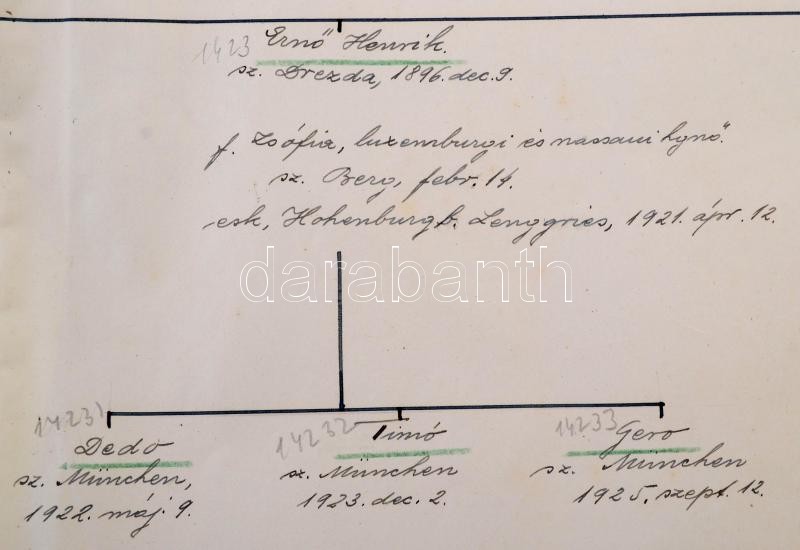 1423 Ernő Henrik.
sz. Drezda, 1896. dec. 9.
f. Zsófia, luxemburgi és nassaui hgnő.
sz. Berg, febr. 14.
esk. Hohenburg b. Lenggries, 1921. ápr. 12.
darabanth
14231
Dedo
sz. München,
1922. máj. 9.
14232
Timó
sz. München
1923. dec. 2.
14233
Gero
sz. München
1925. szept. 12.